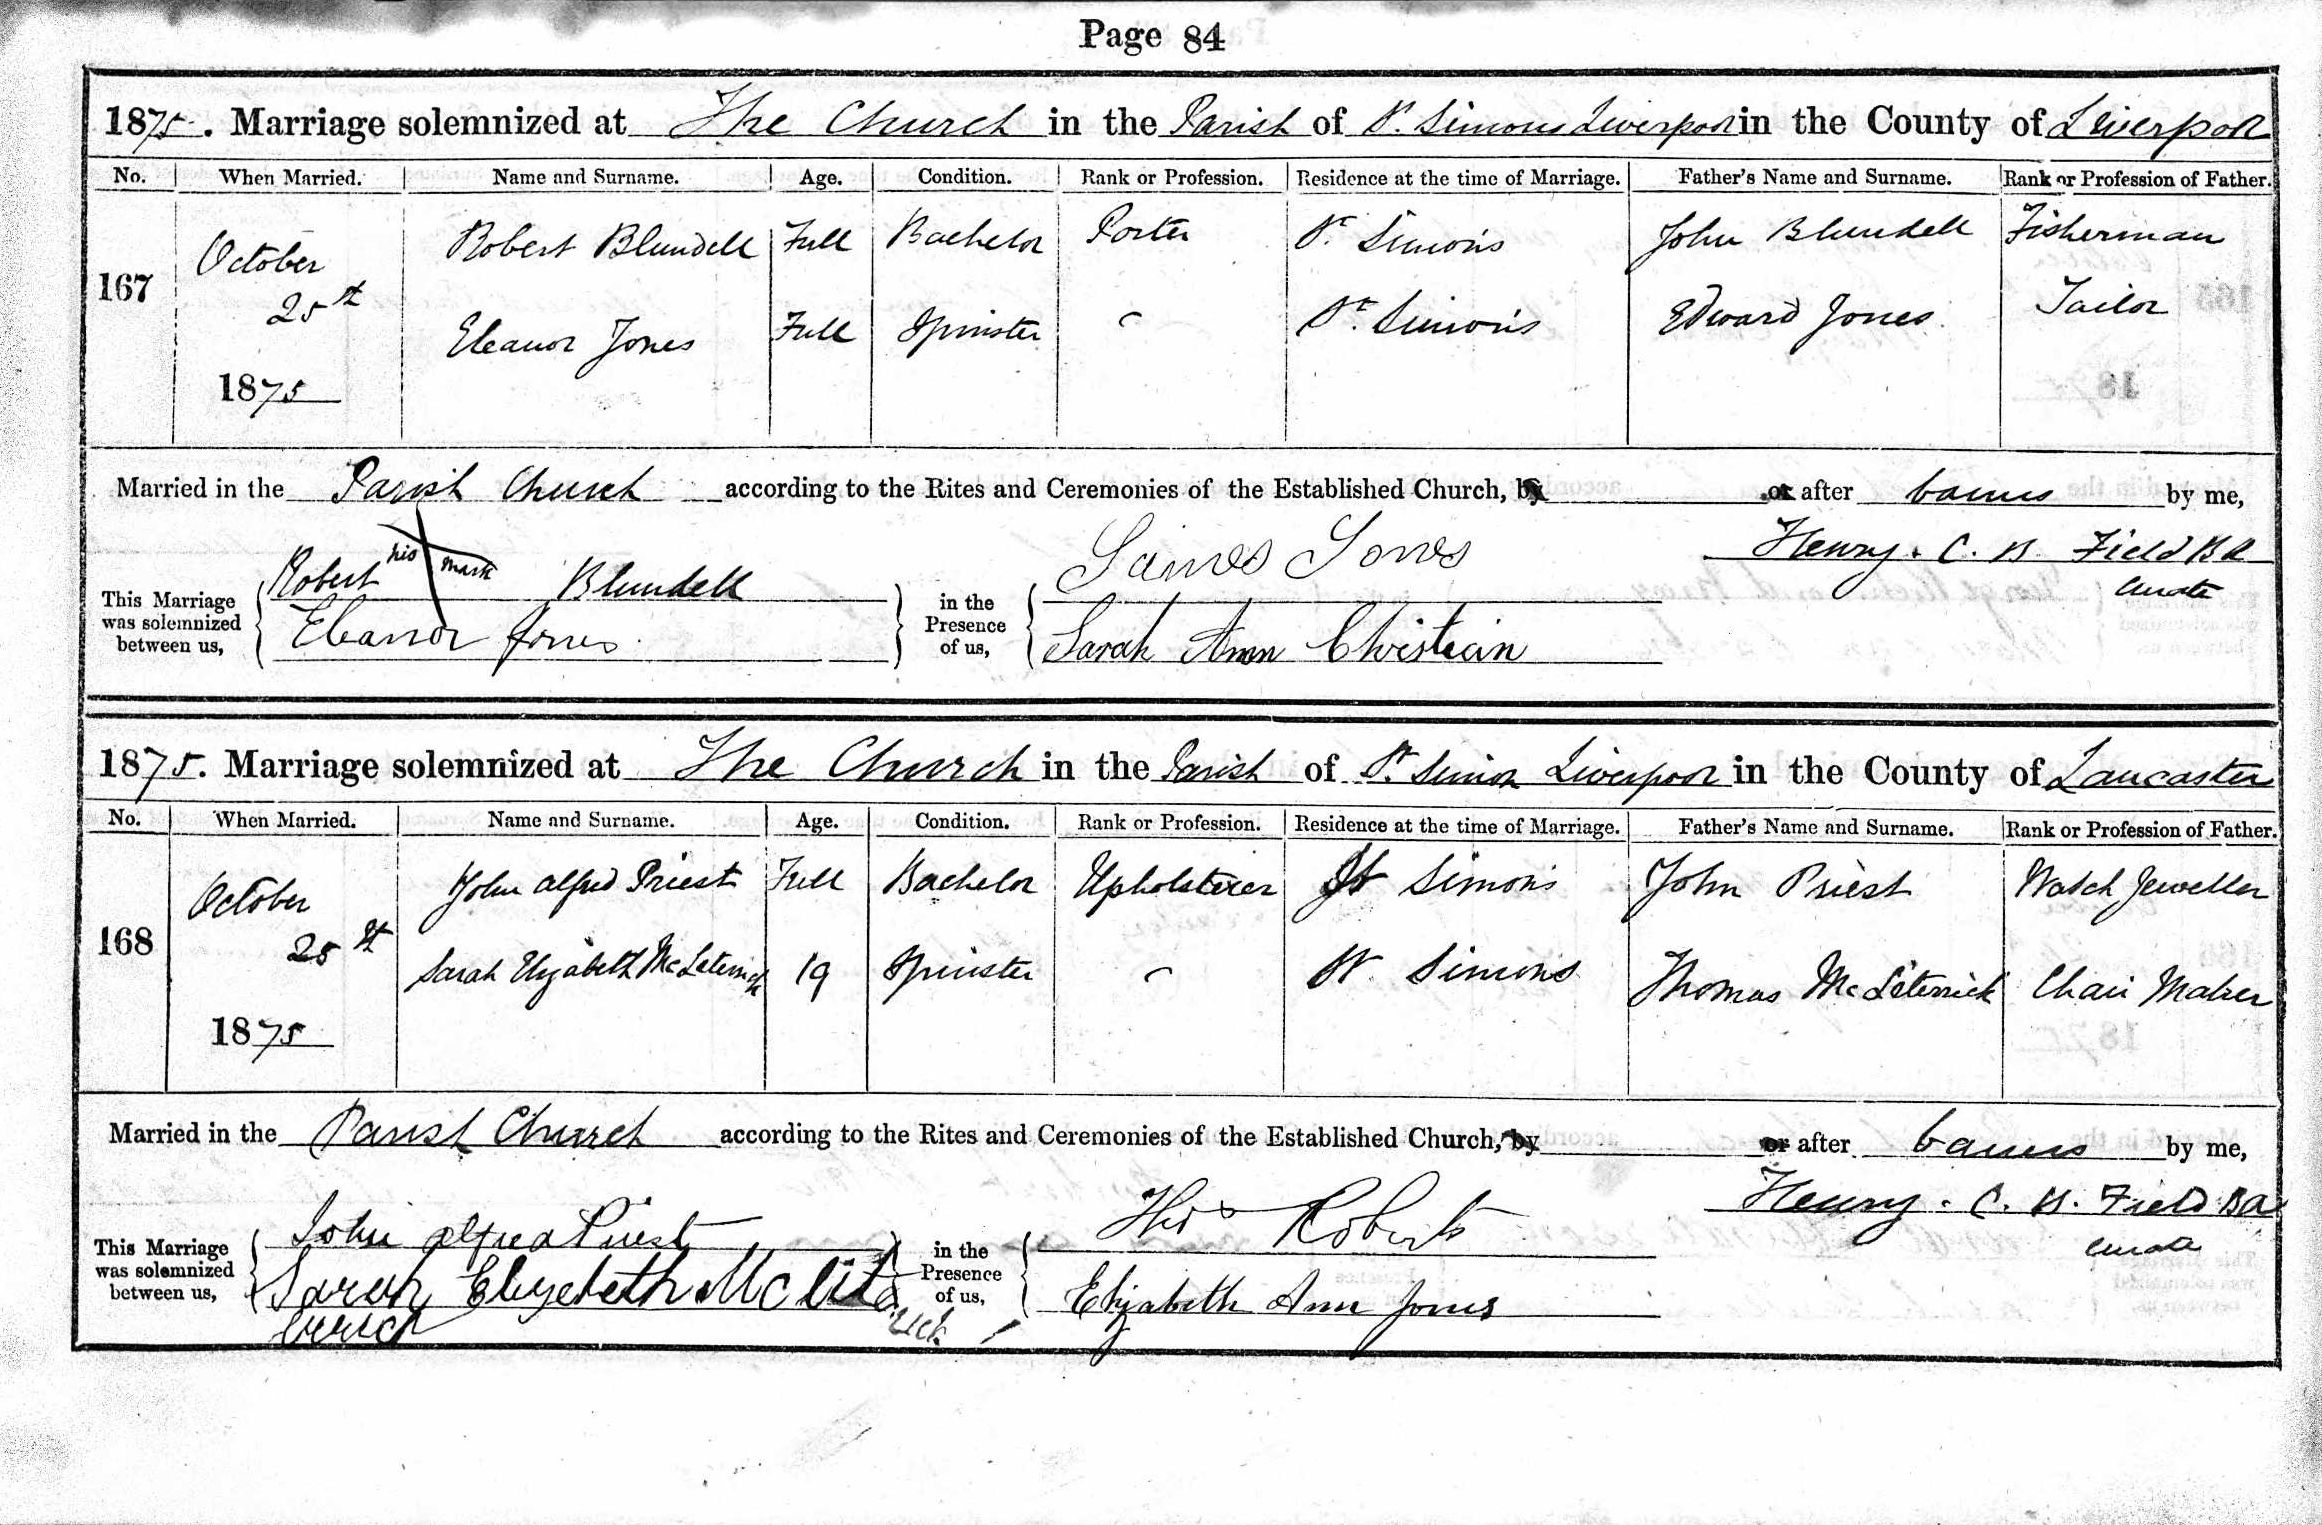 Page 84
1875. Marriage solemnized at The Church in the Parish of St. Simons Liverpool in the County of Liverpool
No. When Married. Name and Surname. Age. Condition. Rank or Profession. Residence at the time of Marriage. Father's Name and Surname. Rank or Profession of Father.
167 October 25th 1875
Robert Blundell Full Bachelor Porter St. Simon's John Blundell Fisherman
Eleanor Jones Full Spinster St. Simon's Edward Jones Tailor
Married in the Parish Church according to the Rites and Ceremonies of the Established Church, by or after banns by me,
Henry. C. B. Field BA
Curate
This Marriage was solemnized between us,
Robert his mark Blundell
Eleanor Jones
in the Presence of us,
James Jones
Sarah Ann Christian
1875. Marriage solemnized at The Church in the Parish of St. Simon Liverpool in the County of Lancaster
No. When Married. Name and Surname. Age. Condition. Rank or Profession. Residence at the time of Marriage. Father's Name and Surname. Rank or Profession of Father.
168 October 25th 1875
John Alfred Priest Full Bachelor Upholsterer St Simon's John Priest Watch Jeweller
Sarah Elizabeth 19 Spinster St. Simons Thomas McLiterrick Chair Maker
Married in the Parish Church according to the Rites and Ceremonies of the Established Church, by or after banns by me,
Henry. C. B. Field BA
Curate
This Marriage was solemnized between us,
John Alfred Priest
Sarah Elizebeth
in the Presence of us,
Roberts
Elizabeth Ann Jones